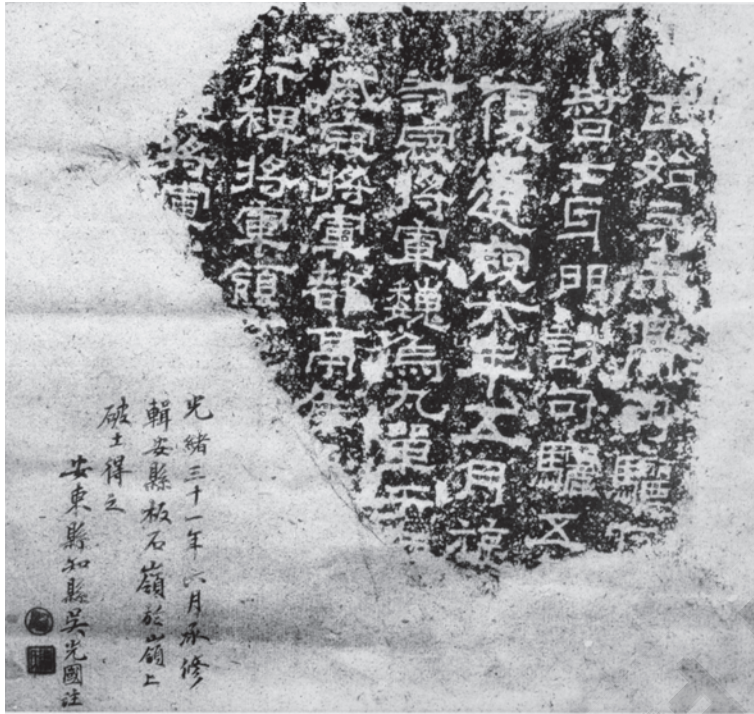 正始三年高句驪
督七牙門討句驪五
復遣寇六年五月旋
討寇將軍魏烏丸單于
威寇將軍都亭侯
行裨將軍領
將軍
光緒三十一年六月承修
輯安縣板石嶺於嶺上
破土得之
安東縣知縣吳光國註